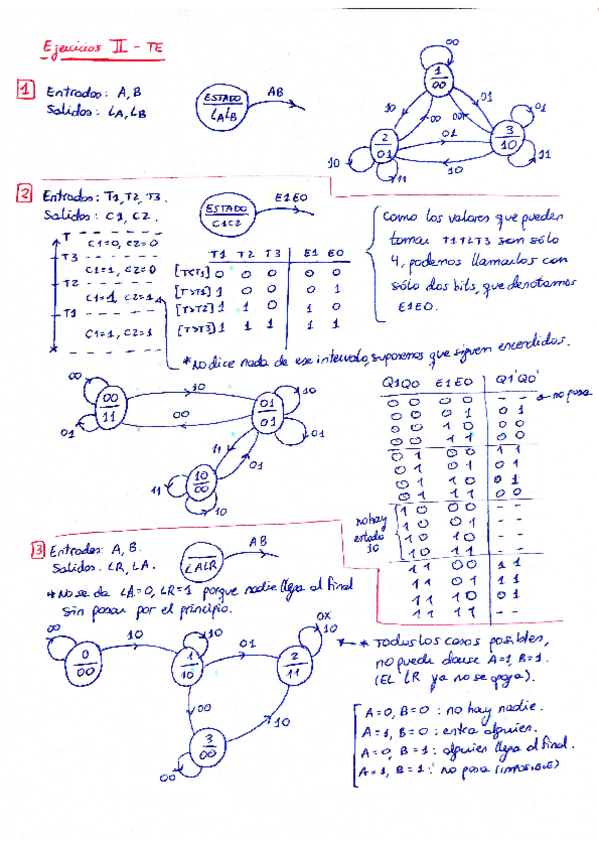 Ejercicios II - TE
1 Entradas: A, B
Salidas: LA, LB
ESTADO
LALB
AB
00
1
00
10
01
00
00
2
01
01
3
10
01
11
10
10
11
2 Entradas: T1, T2, T3.
Salidas: C1, C2.
ESTADO
C1C2
E1E0
T
C1=0, C2=0
T3
C1=1, C2=0
T2
C1=1, C2=1
T1
C1=1, C2=1
T1 T2 T3 E1 E0
[T<T1] 0 0 0 0 0
[T>T1] 1 0 0 0 1
[T>T2] 1 1 0 1 0
[T>T3] 1 1 1 1 1
Como los valores que pueden
tomar T1T2T3 son sólo
4, podemos llamarlos con
sólo dos bits, que denotamos
E1E0.
* No dice nada de ese intervalo, suponemos que siguen encendidos.
00
00
11
01
10
00
01
01
10
01
11
01
10
00
11
10
Q1Q0 E1E0 Q1'Q0'
0 0 0 0 - - no pasa
0 0 0 1 0 1
0 0 1 0 0 0
0 0 1 1 0 0
0 1 0 0 1 1
0 1 0 1 0 1
0 1 1 0 0 1
0 1 1 1 0 0
no hay
estado
10
1 0 0 0 - -
1 0 0 1 - -
1 0 1 0 - -
1 0 1 1 - -
1 1 0 0 1 1
1 1 0 1 1 1
1 1 1 0 0 1
1 1 1 1 - -
3 Entradas: A, B.
Salidas: LR, LA.
LALR
AB
* No se da LA=0, LR=1 porque nadie llega al final
sin pasar por el principio.
00
0
00
10
10
1
10
01
0X
10
2
11
00
3
00
10
00
* Todos los casos posibles,
no puede darse A=1, B=1.
(EL LR ya no se apaga).
A=0, B=0 : no hay nadie.
A=1, B=0 : entra alguien.
A=0, B=1 : alguien llega al final.
A=1, B=1 : no pasa (IMPOSIBLE)